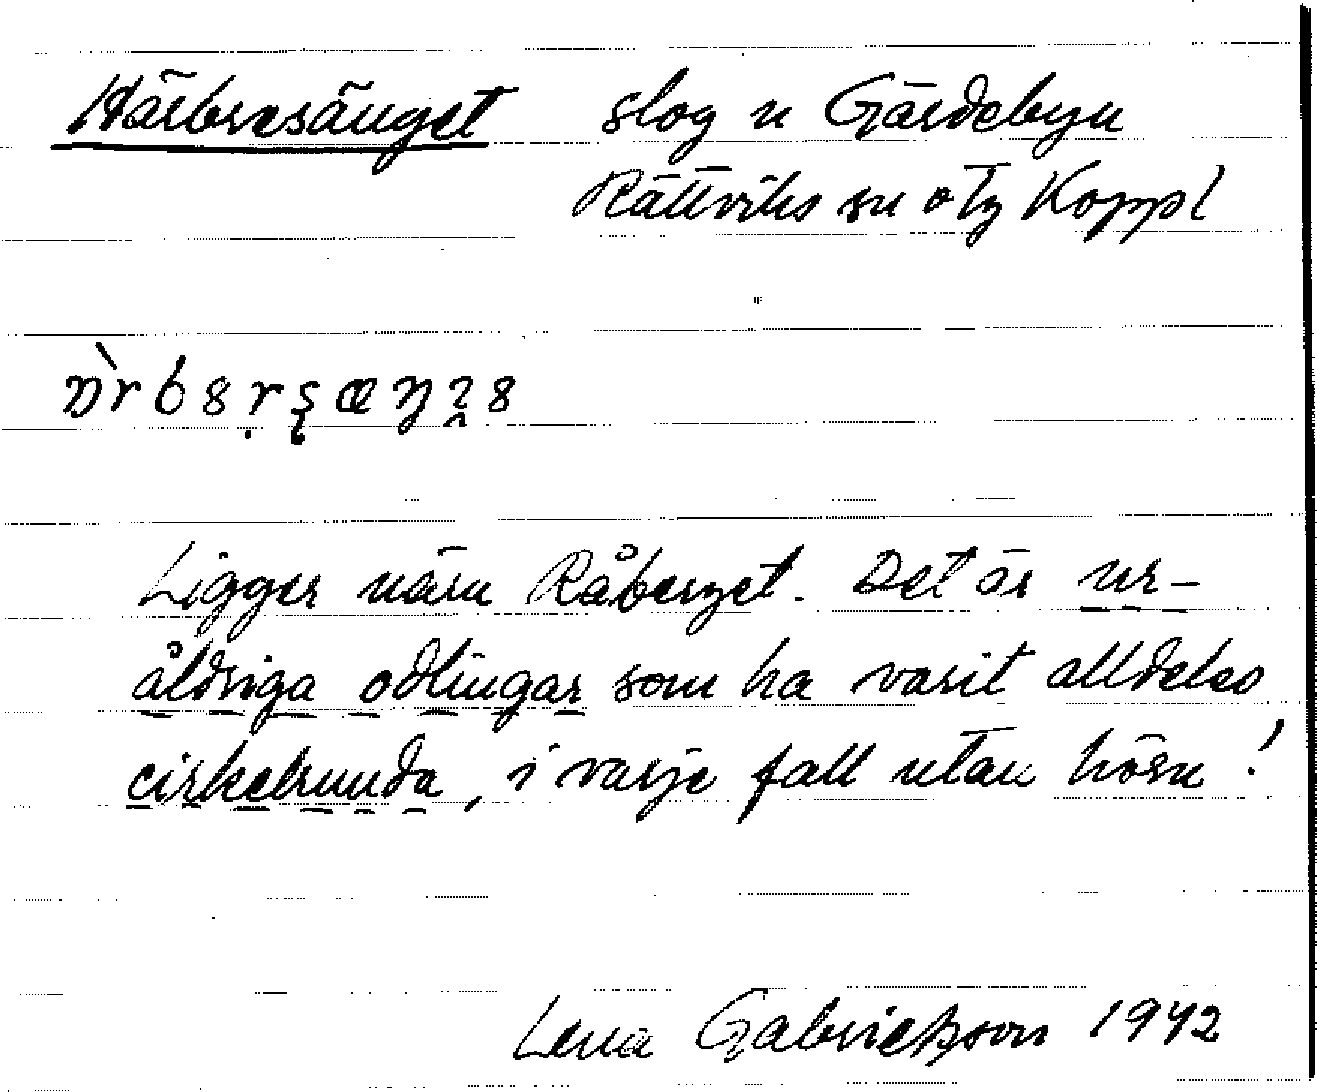 Härbresänget slog u Gärdebyn
Rättviks sn o tg Koppl
Ligger nära Råberget. Det är ur-
åldriga odlingar som ha varit alldeles
cirkelrunda, i varje fall utan hörn!
Lena Gabrielsson 1942